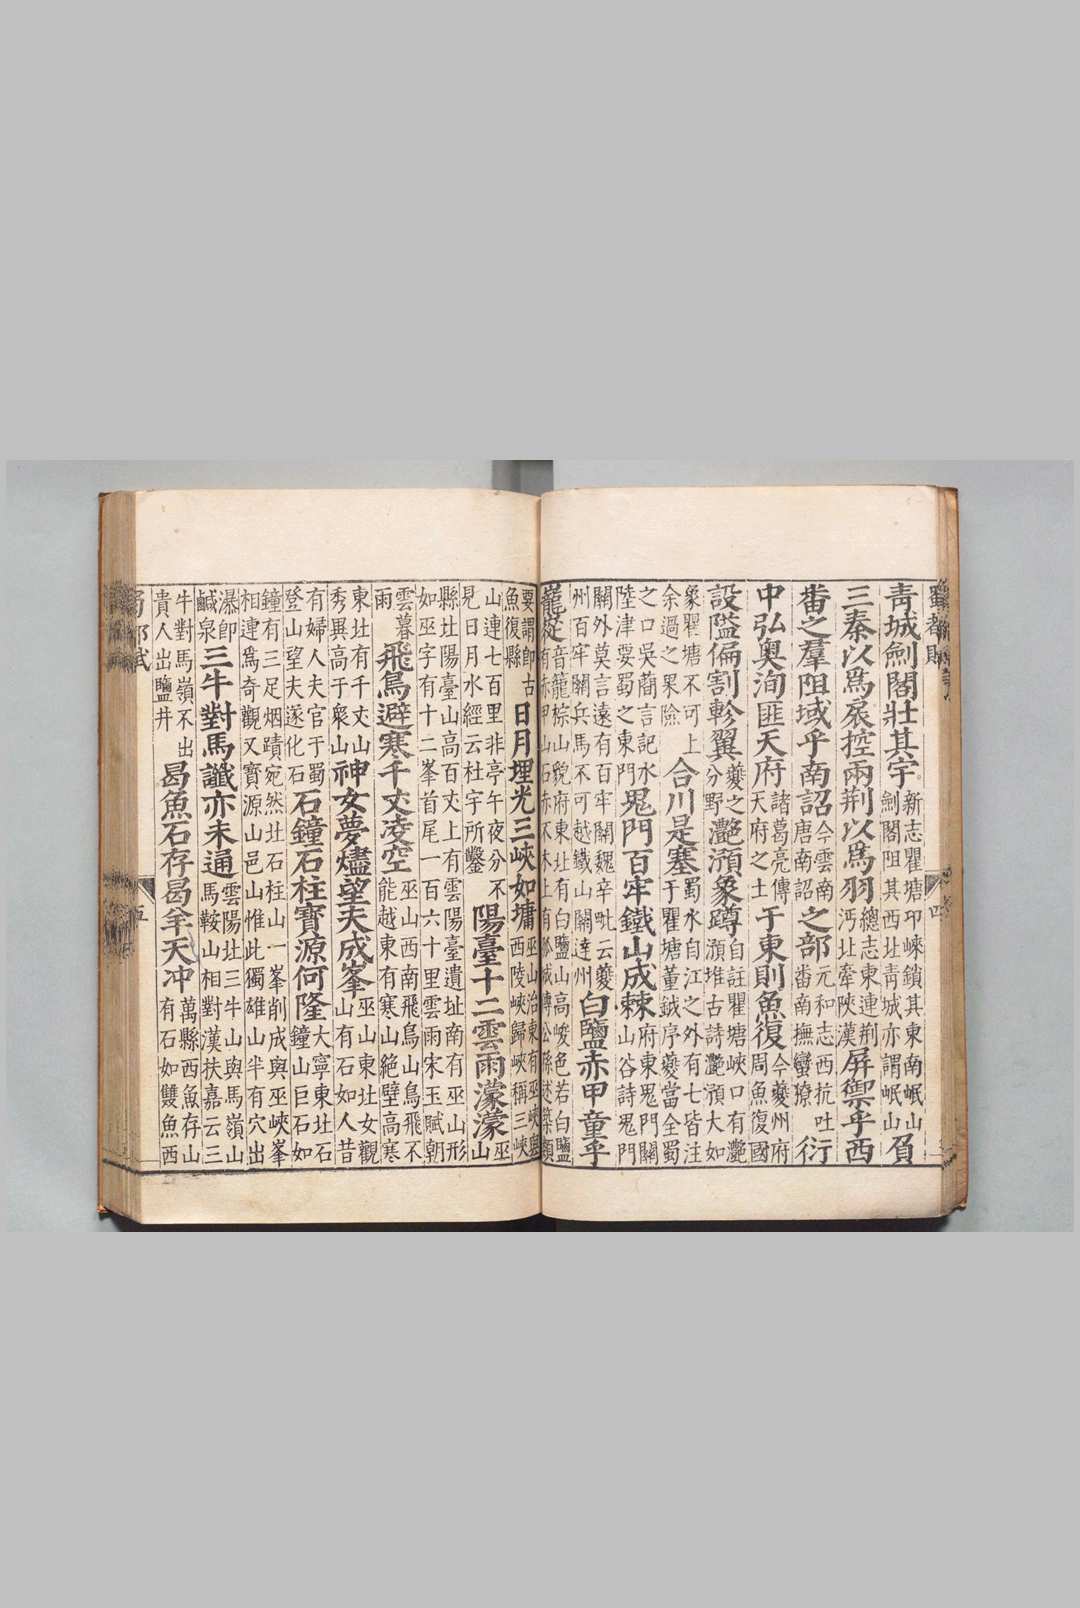 蜀都賦
青城劍閣壯其宇新志瞿塘邛崍鎖其東南岷山劍閣阻其西北青城亦謂岷山負
三秦以爲扆控兩荆以爲羽總志東連荆沔北牽陜漢屏禦乎西
畨之羣阻域乎南詔今雲南唐南詔之部元和志西抗吐畨南撫蠻獠衍
中弘奥洵匪天府諸葛亮傳天府之土于東則魚復今夔州府周魚復國
設隘偏割軫翼夔之分野灎澦象蹲自註瞿塘峽口有灎澦堆古詩灎澦大如
象瞿塘不可上余過之果險合川是塞蜀水自江之外有七皆注于瞿塘董鉞序夔當全蜀
之口吳蕳言記水陸津要蜀之東門鬼門百牢鐵山成棘府東鬼門關山谷詩鬼門
關外莫言遠有百牢關魏辛毗云夔州百牢關兵馬不可越鐵山關達州白鹽赤甲童乎
巃嵸音籠棕山貌府東北有白鹽山高峻色若白鹽有赤甲山石赤不木上有孤城傳公孫述築顔
要謂即古魚復縣日月埋光三峽如墉巫山治東有巫峽與西陵峽歸峽稱三峽
山連七百里非亭午夜分不見日月水經云杜宇所鑿陽臺十二雲雨濛濛巫山
縣北陽臺山高百丈上有雲陽臺遺址南有巫山形如巫字有十二峯首尾一百六十里雲雨宋玉賦朝
雲暮雨飛鳥避寒千丈凌空巫山西南飛鳥山鳥飛不能越東有寒山絶壁高寒
東北有千丈山秀異高于衆山神女夢燼望夫成峯巫山東北女觀山有石如人昔
有婦人夫官于蜀登山望夫遂化石石鐘石柱寶源何隆大寧東北石鐘山巨石如
鐘有三足烟蹟宛然北石柱山一峯削成與巫峽峯相連爲奇觀又寶源山邑山惟此獨雄山半有穴出
瀑即鹹泉三牛對馬讖亦未通雲陽北三牛山與馬嶺山馬鞍山相對漢扶嘉云三
牛對馬嶺不出貴人出鹽井曷魚石存曷羊天冲萬縣西魚存山有石如雙魚西
蜀都賦
五